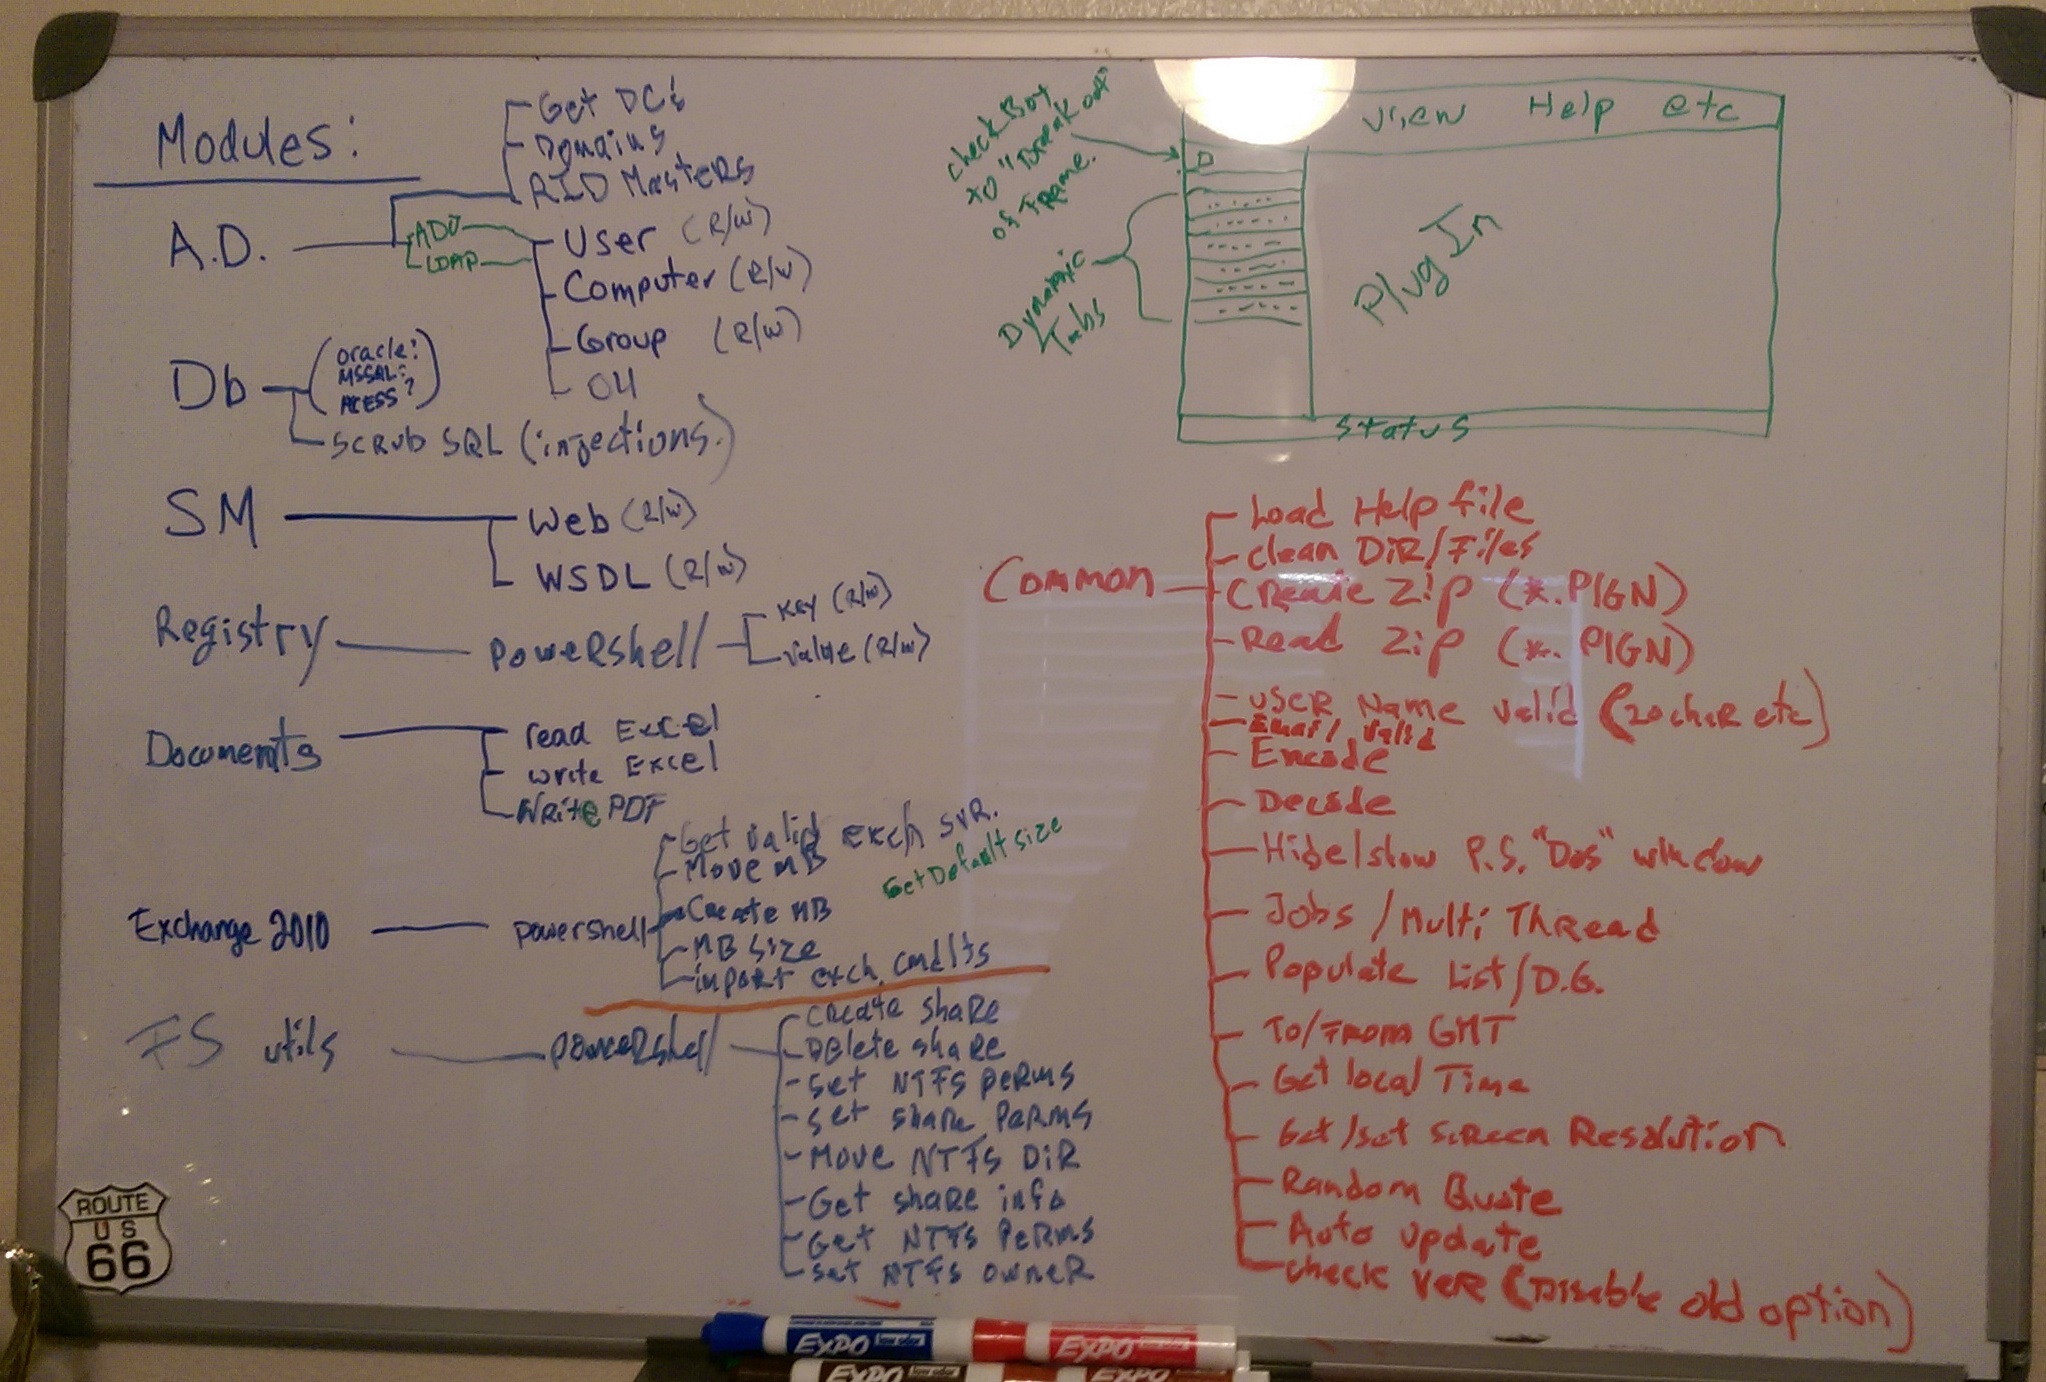 Modules:
Get DC's
Domains
RID Masters
A.D.
ADO
LDAP
User (R/W)
Computer (R/W)
Group (R/W)
OU
Db
Oracle?
MSSQL?
ACESS?
Scrub SQL (injections.)
SM
Web (R/W)
WSDL (R/W)
Registry
Powershell
Key (R/W)
Value (R/W)
Documents
read Excel
write Excel
Write PDF
Exchange 2010
powershell
Get valid exch svr.
Move MB
Create MB
Get Default size
MB Size
import exch. cmdlts
FS utils
powershell
Create share
Delete share
Set NTFS perms
Set share perms
Move NTFS Dir
Get share info
Get NTFS Perms
Set NTFS owner
Check Box
to "Break out"
of Frame.
View Help etc
Dynamic
Tabs
Plug In
Status
Common
Load Help file
Clean Dir/Files
Create Zip (*.PIGN)
Read Zip (*.PIGN)
User Name Valid (20 char etc)
Email Valid
Encode
Decode
Hide/show P.S. "Dos" window
Jobs / Multi Thread
Populate List/D.G.
To/From GMT
Get local Time
Get/set Screen Resolution
Random Quote
Auto update
Check Ver (Disable old option)
ROUTE
US
66
EXPO low odor
EXPO low odor
EXPO low odor
EXPO